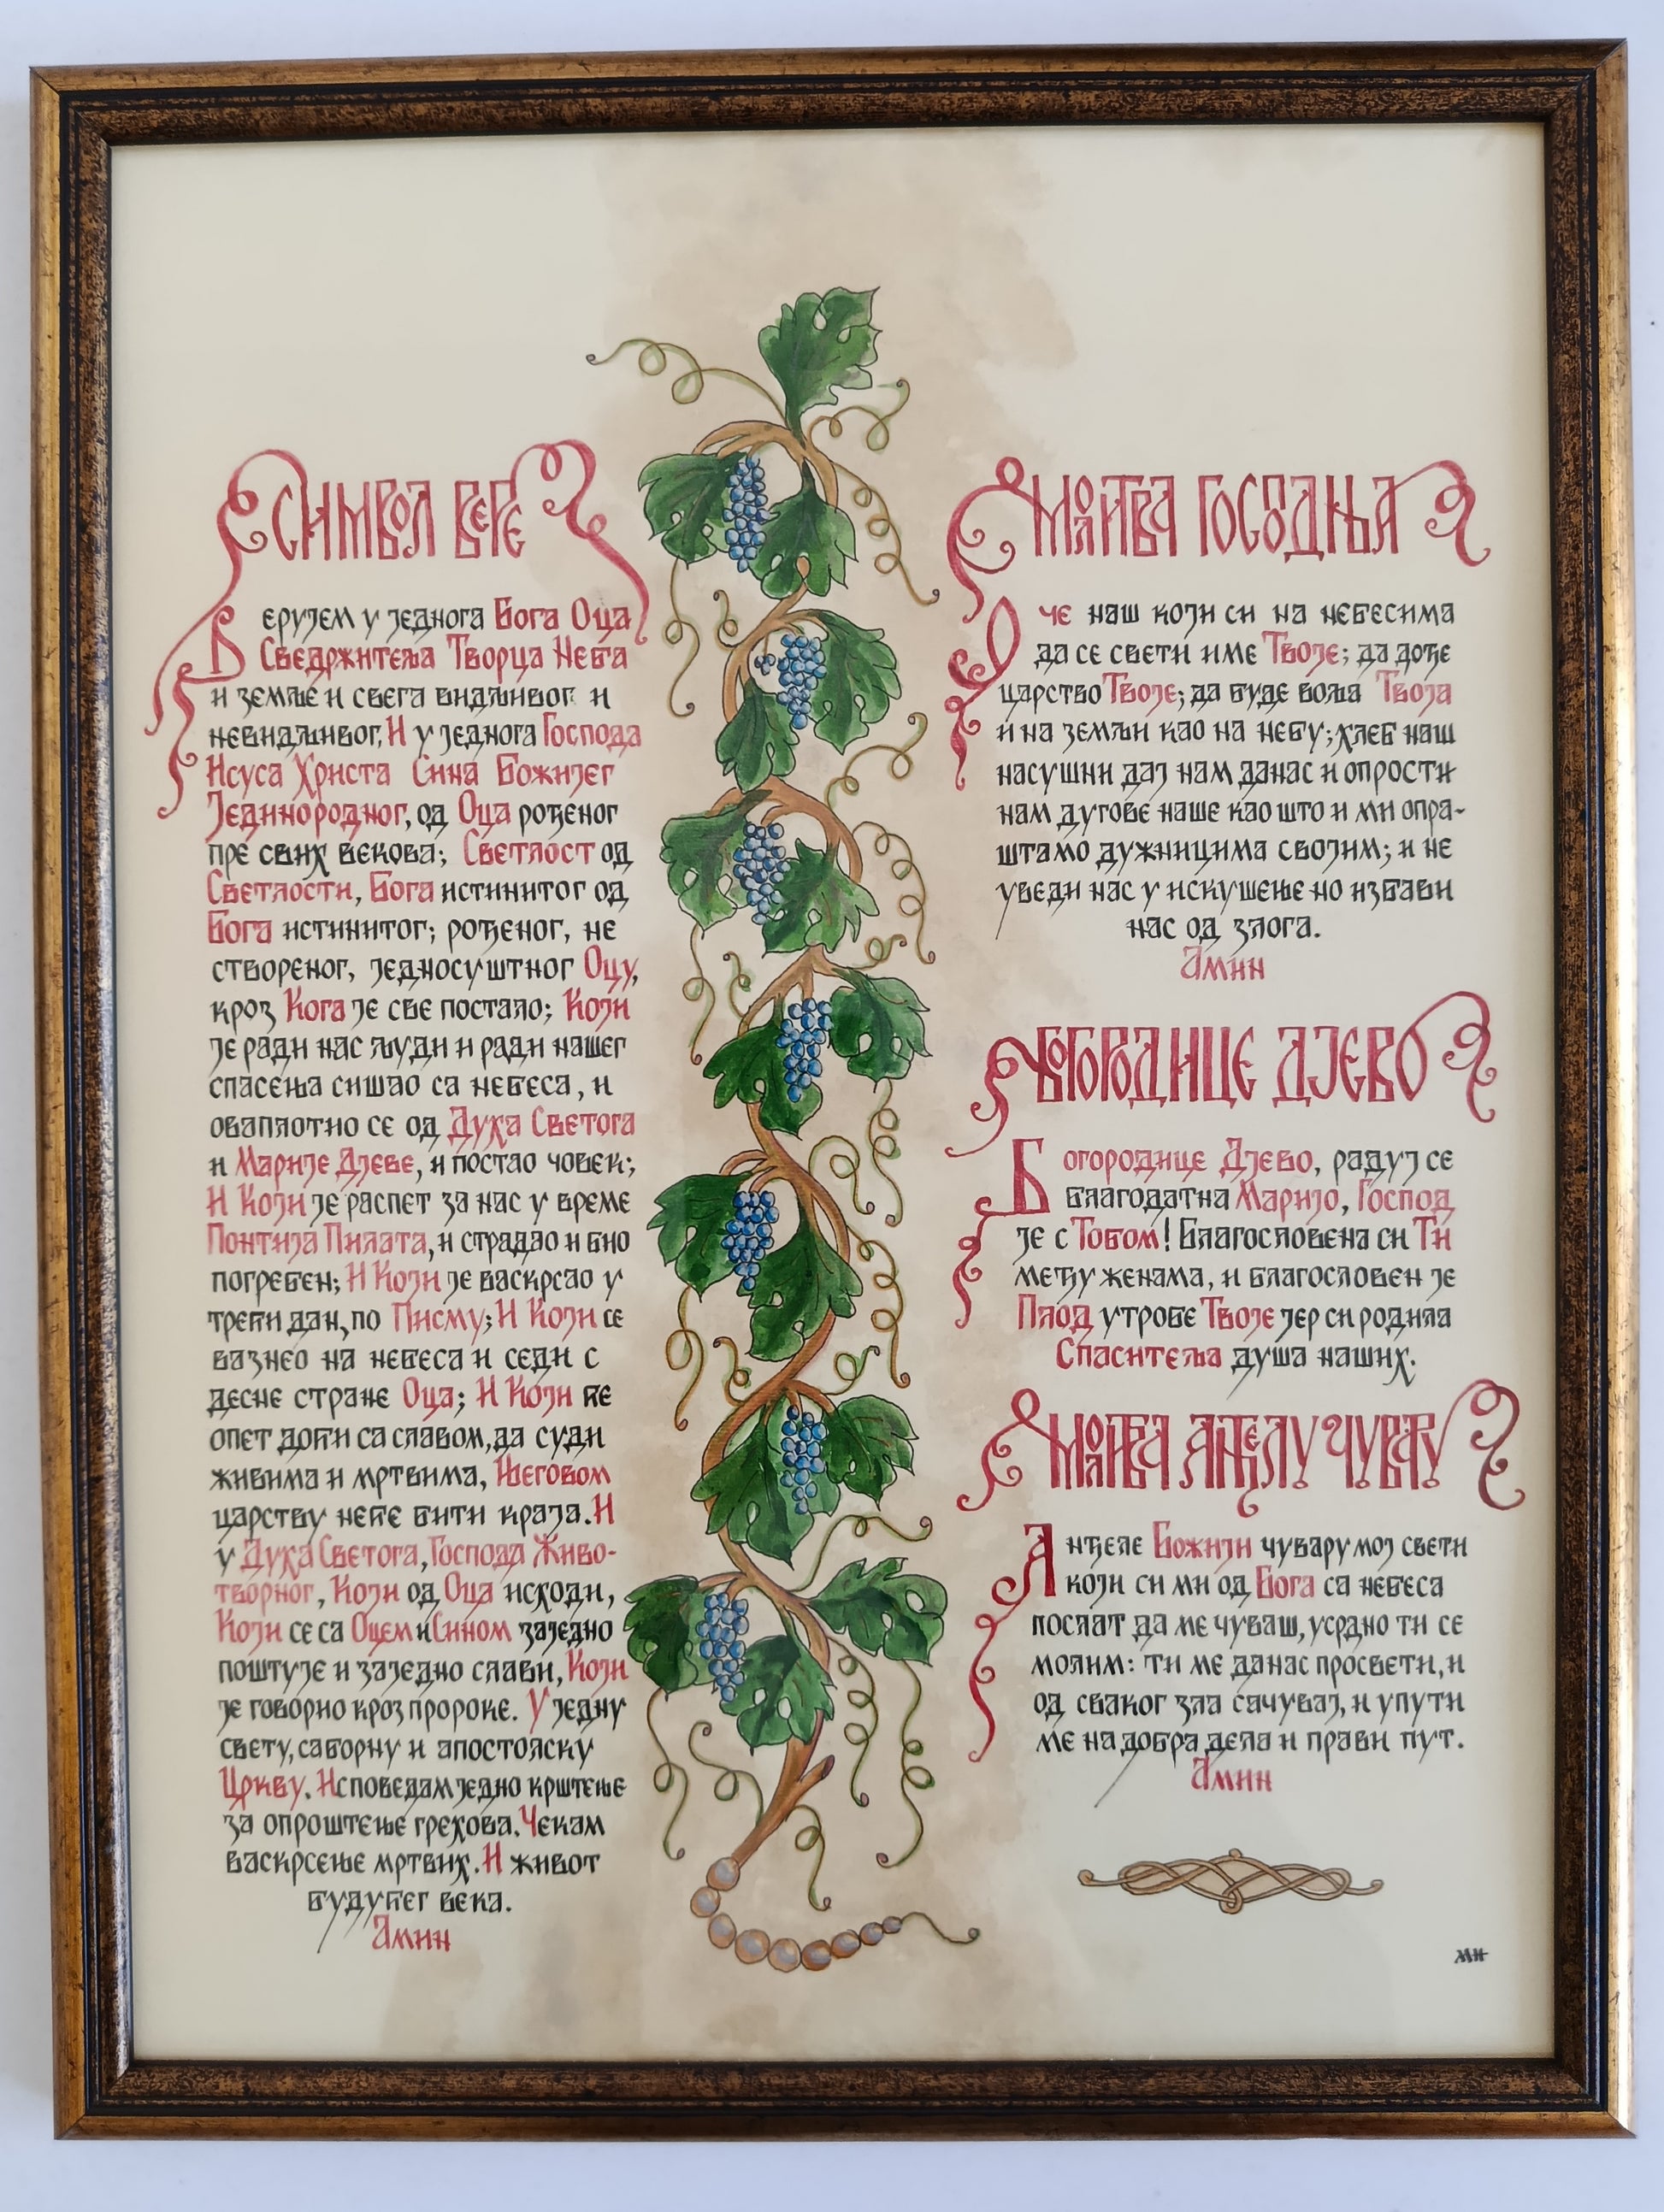 СИМВОЛ ВЕРЕ
Верујем у једнога Бога Оца
Сведржитеља Творца Неба
и земље и свега видљивог и
невидљивог, И у једнога Господа
Исуса Христа Сина Божијег
Јединородног, од Оца рођеног
пре свих векова; Светлост од
Светлости, Бога истинитог од
Бога истинитог; рођеног, не
створеног, једносуштног Оцу,
кроз Кога је све постало; Који
је ради нас људи и ради нашег
спасења сишао са небеса, и
оваплотио се од Духа Светога
и Марије Дјеве, и постао човек;
И Који је распет за нас у време
Понтија Пилата, и страдао и био
погребен; И Који је васкрсао у
трећи дан, по Писму; И Који се
вазнео на небеса и седи с
десне стране Оца; И Који ће
опет доћи са славом, да суди
живима и мртвима, Његовом
царству неће бити краја. И
у Духа Светога, Господа Живо-
творног, Који од Оца исходи,
Који се са Оцем и Сином заједно
поштује и заједно слави, Који
је говорио кроз пророке. У једну
свету, саборну и апостолску
Цркву. Исповедам једно крштење
за опроштење грехова. Чекам
васкрсење мртвих. И живот
будућег века.
Амин
МОЛИТВА ГОСПОДЊА
Оче наш који си на небесима
да се свети име Твоје; да дође
царство Твоје; да буде воља Твоја
и на земљи као на небу; хлеб наш
насушни дај нам данас и опрости
нам дугове наше као што и ми опра-
штамо дужницима својим; и не
уведи нас у искушење но избави
нас од злога.
Амин
БОГОРОДИЦЕ ДЈЕВО
Богородице Дјево, радуј се
благодатна Маријо, Господ
је с Тобом! Благословена си Ти
међу женама, и благословен је
Плод утробе Твоје јер си родила
Спаситеља душа наших.
МОЛИТВА АНЂЕЛУ ЧУВАРУ
Анђеле Божији чувару мој свети
који си ми од Бога са небеса
послат да ме чуваш, усрдно ти се
молим: ти ме данас просвети, и
од сваког зла сачувај, и упути
ме на добра дела и прави пут.
Амин
МН